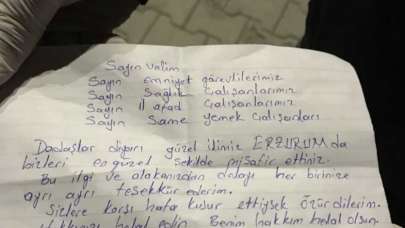 Sayın Valim
Sayın emniyet görevlilerimiz
Sayın Sağlık Çalışanlarımız
Sayın İl afad Çalışanlarımız
Sayın Same yemek Çalışanları
Dadaşlar diyarı güzel ilimiz ERZURUM da
bizleri en güzel şekilde misafir ettiniz.
Bu ilgi ve alakanızdan dolayı her birinize
ayrı ayrı teşekkür ederim.
Sizlere karşı hata kusur ettiysek özür dilerim.
Hakkınızı helal edin. Benim hakkım helal olsun